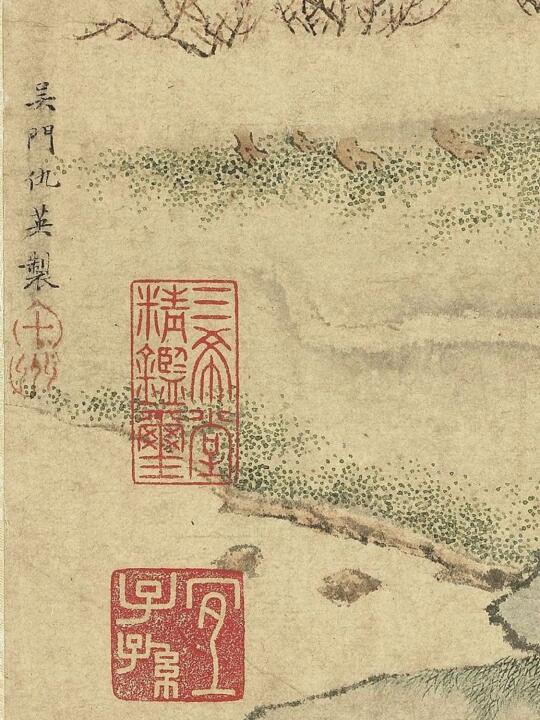 吳門仇英製
十洲
三希堂
精鑑璽
宜
子孫